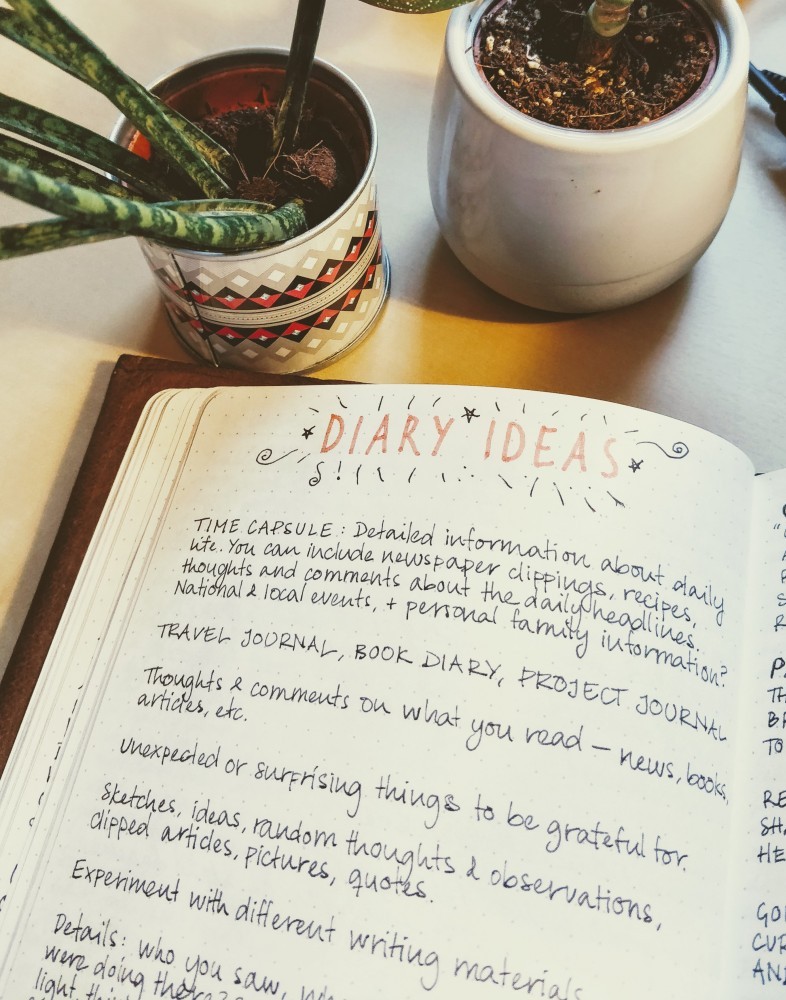 DIARY IDEAS
TIME CAPSULE: Detailed information about daily
life. You can include newspaper clippings, recipes,
thoughts and comments about the daily headlines.
National & local events, + personal family information?
TRAVEL JOURNAL, BOOK DIARY, PROJECT JOURNAL
Thoughts & comments on what you read — news, books,
articles, etc.
Unexpected or surprising things to be grateful for.
Sketches, ideas, random thoughts & observations,
clipped articles, pictures, quotes.
Experiment with different writing materials
Details: who you saw,
were doing there?
light,
TO
RE
HE